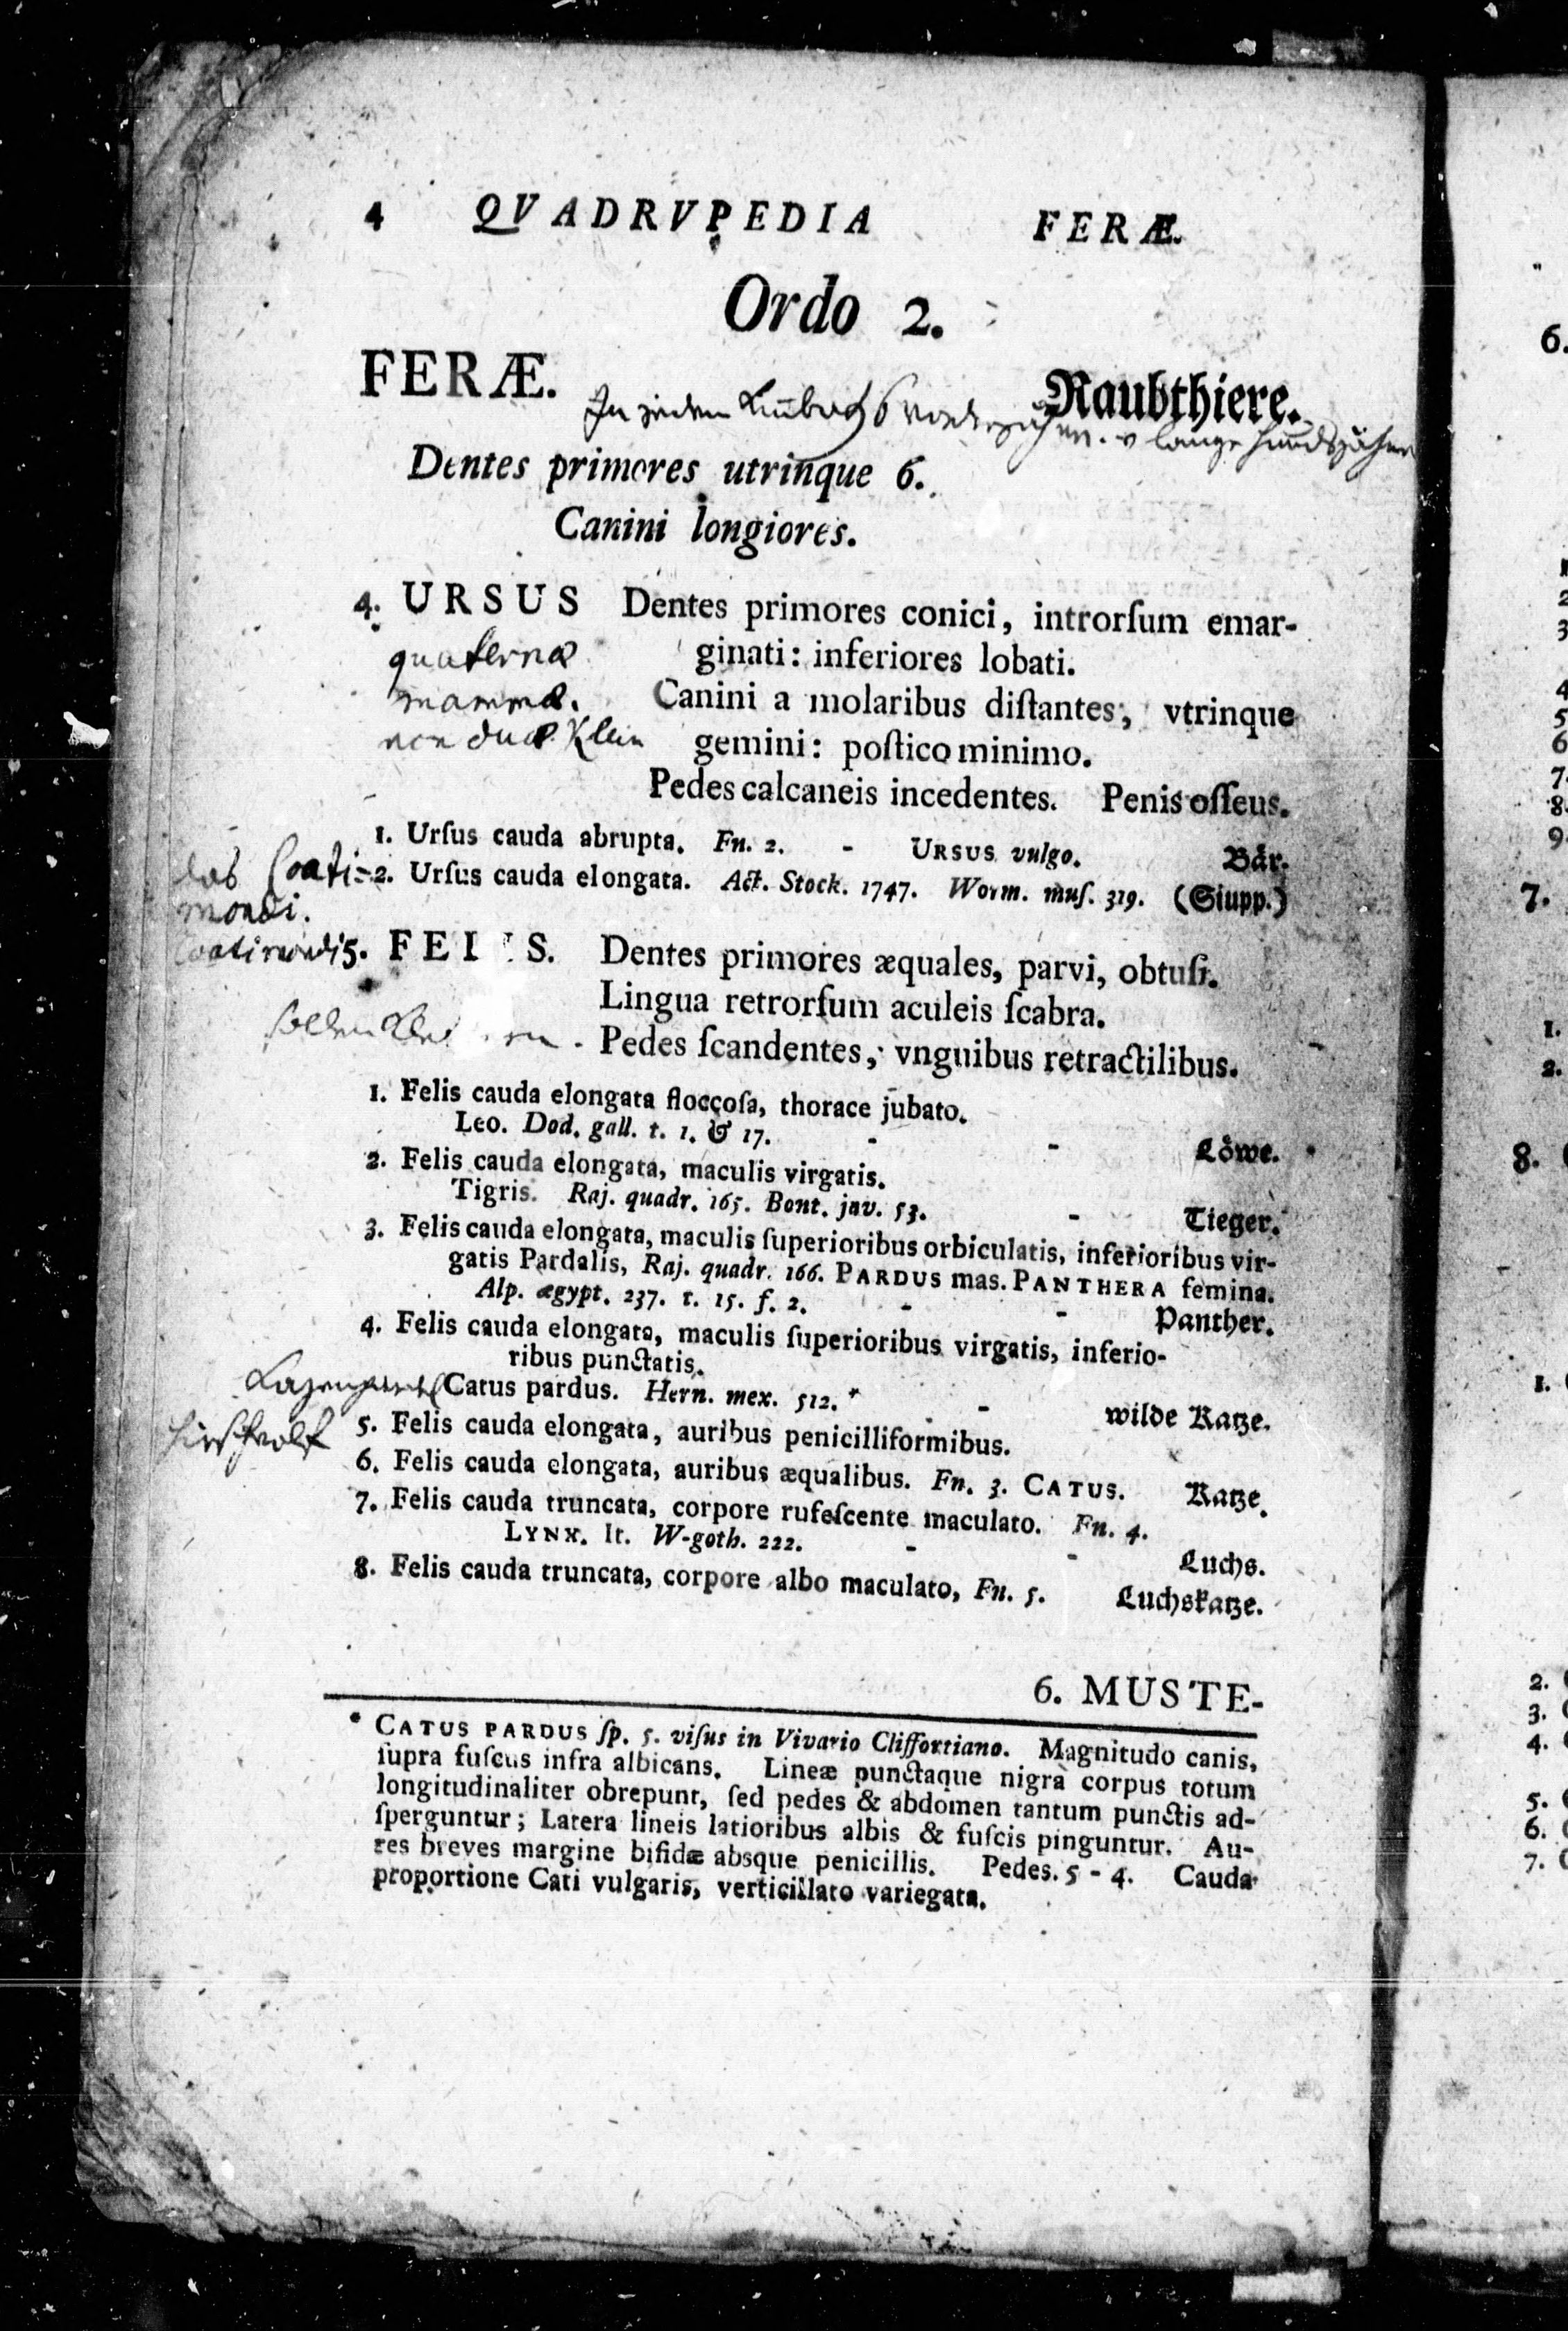 4 QVADRVPEDIA FERÆ.
Ordo 2.
FERÆ. Raubthiere.
In jedem Kinbach 6 vorderzähnen. v lange hundszähne
Dentes primores utrinque 6.
Canini longiores.
4. URSUS Dentes primores conici, introrſum emar-
quaternæ ginati: inferiores lobati.
mammæ. Canini a molaribus diſtantes, vtrinque
non duæ Klein gemini: poſtico minimo.
Pedes calcaneis incedentes. Penis oſſeus.
1. Urſus cauda abrupta. Fn. 2. - URSUS vulgo. Bär.
das Coati- 2. Urſus cauda elongata. Act. Stock. 1747. Worm. muſ. 319. (Siupp.)
mondi.
Coatimondi 5. FE S. Dentes primores æquales, parvi, obtuſi.
Lingua retrorſum aculeis ſcabra.
Pedes ſcandentes, vnguibus retractilibus.
1. Felis cauda elongata floccoſa, thorace jubato.
Leo. Dod. gall. t. 1. & 17. - - Löwe.
2. Felis cauda elongata, maculis virgatis.
Tigris. Raj. quadr. 165. Bont. jav. 53. - Tieger.
3. Felis cauda elongata, maculis ſuperioribus orbiculatis, inferioribus vir-
gatis Pardalis, Raj. quadr. 166. PARDUS mas. PANTHERA femina.
Alp. ægypt. 237. t. 15. f. 2. - - Panther.
4. Felis cauda elongata, maculis ſuperioribus virgatis, inferio-
ribus punctatis.
Catus pardus. Hern. mex. 512. * - - wilde Katze.
hirschwolf 5. Felis cauda elongata, auribus penicilliformibus.
6. Felis cauda elongata, auribus æqualibus. Fn. 3. CATUS. Katze.
7. Felis cauda truncata, corpore rufeſcente maculato. Fn. 4.
LYNX. It. W-goth. 222. - - Luchs.
8. Felis cauda truncata, corpore albo maculato, Fn. 5. Luchskatze.
6. MUSTE-
* CATUS PARDUS ſp. 5. viſus in Vivario Cliffortiano. Magnitudo canis,
ſupra fuſcus infra albicans. Lineæ punctaque nigra corpus totum
longitudinaliter obrepunt, ſed pedes & abdomen tantum punctis ad-
ſperguntur; Latera lineis latioribus albis & fuſcis pinguntur. Au-
res breves margine bifidæ absque penicillis. Pedes. 5 - 4. Cauda
proportione Cati vulgaris, verticillato variegata.
6.
7.
1.
2.
8.
1.
2.
3.
4.
5.
6.
7.